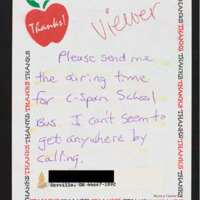 Thanks!
viewer
Please send me
the airing time
for C-Span School
Bus. I can't seem to
get anywhere by
calling.
Orrville, OH 44667-1092
THANKS THANKS THANKS THANKS THANKS THANKS
THANKS THANKS THANKS THANKS THANKS THANKS